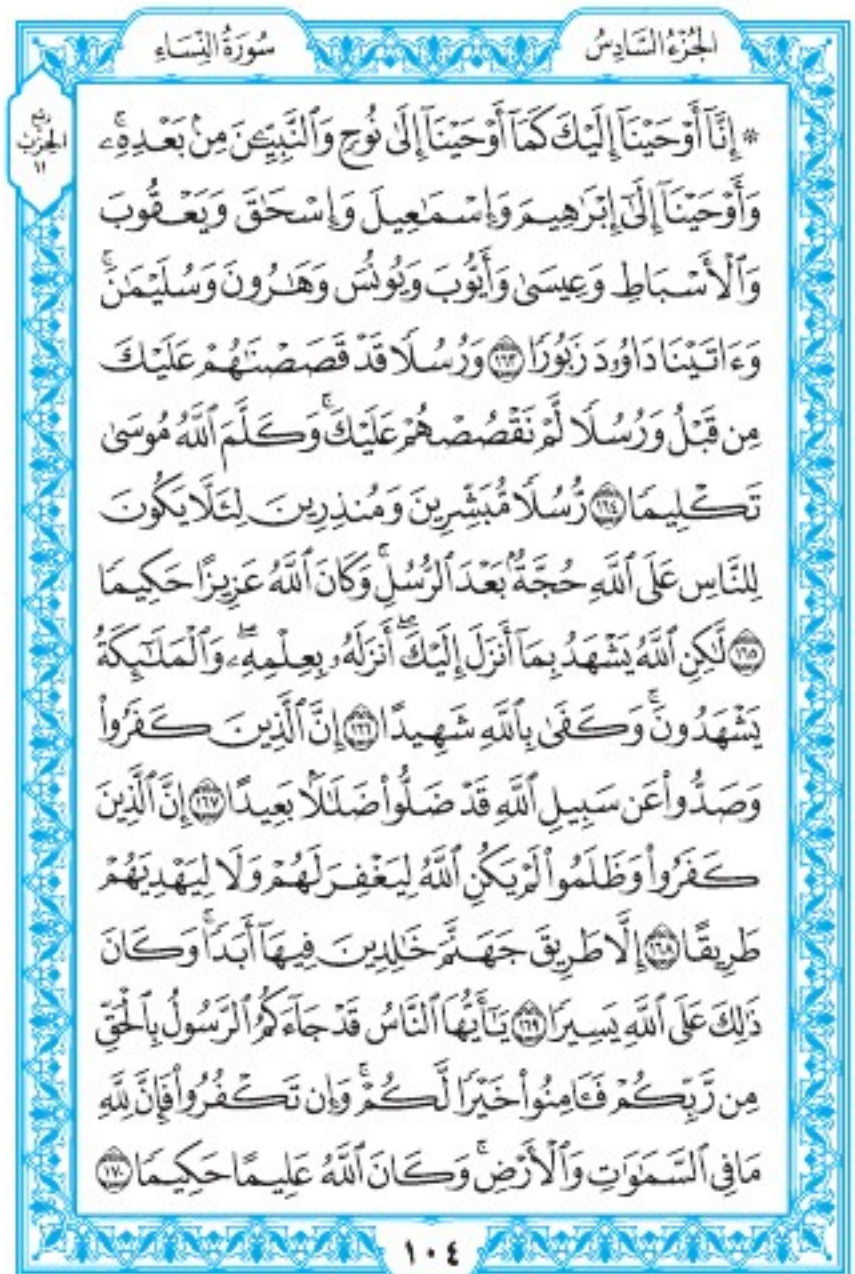 الجزء السادس
سورة النساء
ربع
الحزب
١١
* إِنَّآ أَوْحَيْنَآ إِلَيْكَ كَمَآ أَوْحَيْنَآ إِلَىٰ نُوحٍ وَٱلنَّبِيِّـۧنَ مِنۢ بَعْدِهِۦۚ
وَأَوْحَيْنَآ إِلَىٰٓ إِبْرَٰهِيمَ وَإِسْمَٰعِيلَ وَإِسْحَٰقَ وَيَعْقُوبَ
وَٱلْأَسْبَاطِ وَعِيسَىٰ وَأَيُّوبَ وَيُونُسَ وَهَٰرُونَ وَسُلَيْمَٰنَۚ
وَءَاتَيْنَا دَاوُۥدَ زَبُورًا ١٦٣ وَرُسُلًا قَدْ قَصَصْنَٰهُمْ عَلَيْكَ
مِن قَبْلُ وَرُسُلًا لَّمْ نَقْصُصْهُمْ عَلَيْكَۚ وَكَلَّمَ ٱللَّهُ مُوسَىٰ
تَكْلِيمًا ١٦٤ رُّسُلًا مُّبَشِّرِينَ وَمُنذِرِينَ لِئَلَّا يَكُونَ
لِلنَّاسِ عَلَى ٱللَّهِ حُجَّةٌۢ بَعْدَ ٱلرُّسُلِۚ وَكَانَ ٱللَّهُ عَزِيزًا حَكِيمًا
١٦٥ لَّٰكِنِ ٱللَّهُ يَشْهَدُ بِمَآ أَنزَلَ إِلَيْكَۖ أَنزَلَهُۥ بِعِلْمِهِۦۖ وَٱلْمَلَٰٓئِكَةُ
يَشْهَدُونَۚ وَكَفَىٰ بِٱللَّهِ شَهِيدًا ١٦٦ إِنَّ ٱلَّذِينَ كَفَرُوا۟
وَصَدُّوا۟ عَن سَبِيلِ ٱللَّهِ قَدْ ضَلُّوا۟ ضَلَٰلًۢا بَعِيدًا ١٦٧ إِنَّ ٱلَّذِينَ
كَفَرُوا۟ وَظَلَمُوا۟ لَمْ يَكُنِ ٱللَّهُ لِيَغْفِرَ لَهُمْ وَلَا لِيَهْدِيَهُمْ
طَرِيقًا ١٦٨ إِلَّا طَرِيقَ جَهَنَّمَ خَٰلِدِينَ فِيهَآ أَبَدًاۚ وَكَانَ
ذَٰلِكَ عَلَى ٱللَّهِ يَسِيرًا ١٦٩ يَٰٓأَيُّهَا ٱلنَّاسُ قَدْ جَآءَكُمُ ٱلرَّسُولُ بِٱلْحَقِّ
مِن رَّبِّكُمْ فَـَٔامِنُوا۟ خَيْرًا لَّكُمْۚ وَإِن تَكْفُرُوا۟ فَإِنَّ لِلَّهِ
مَا فِى ٱلسَّمَٰوَٰتِ وَٱلْأَرْضِۚ وَكَانَ ٱللَّهُ عَلِيمًا حَكِيمًا ١٧٠
١٠٤